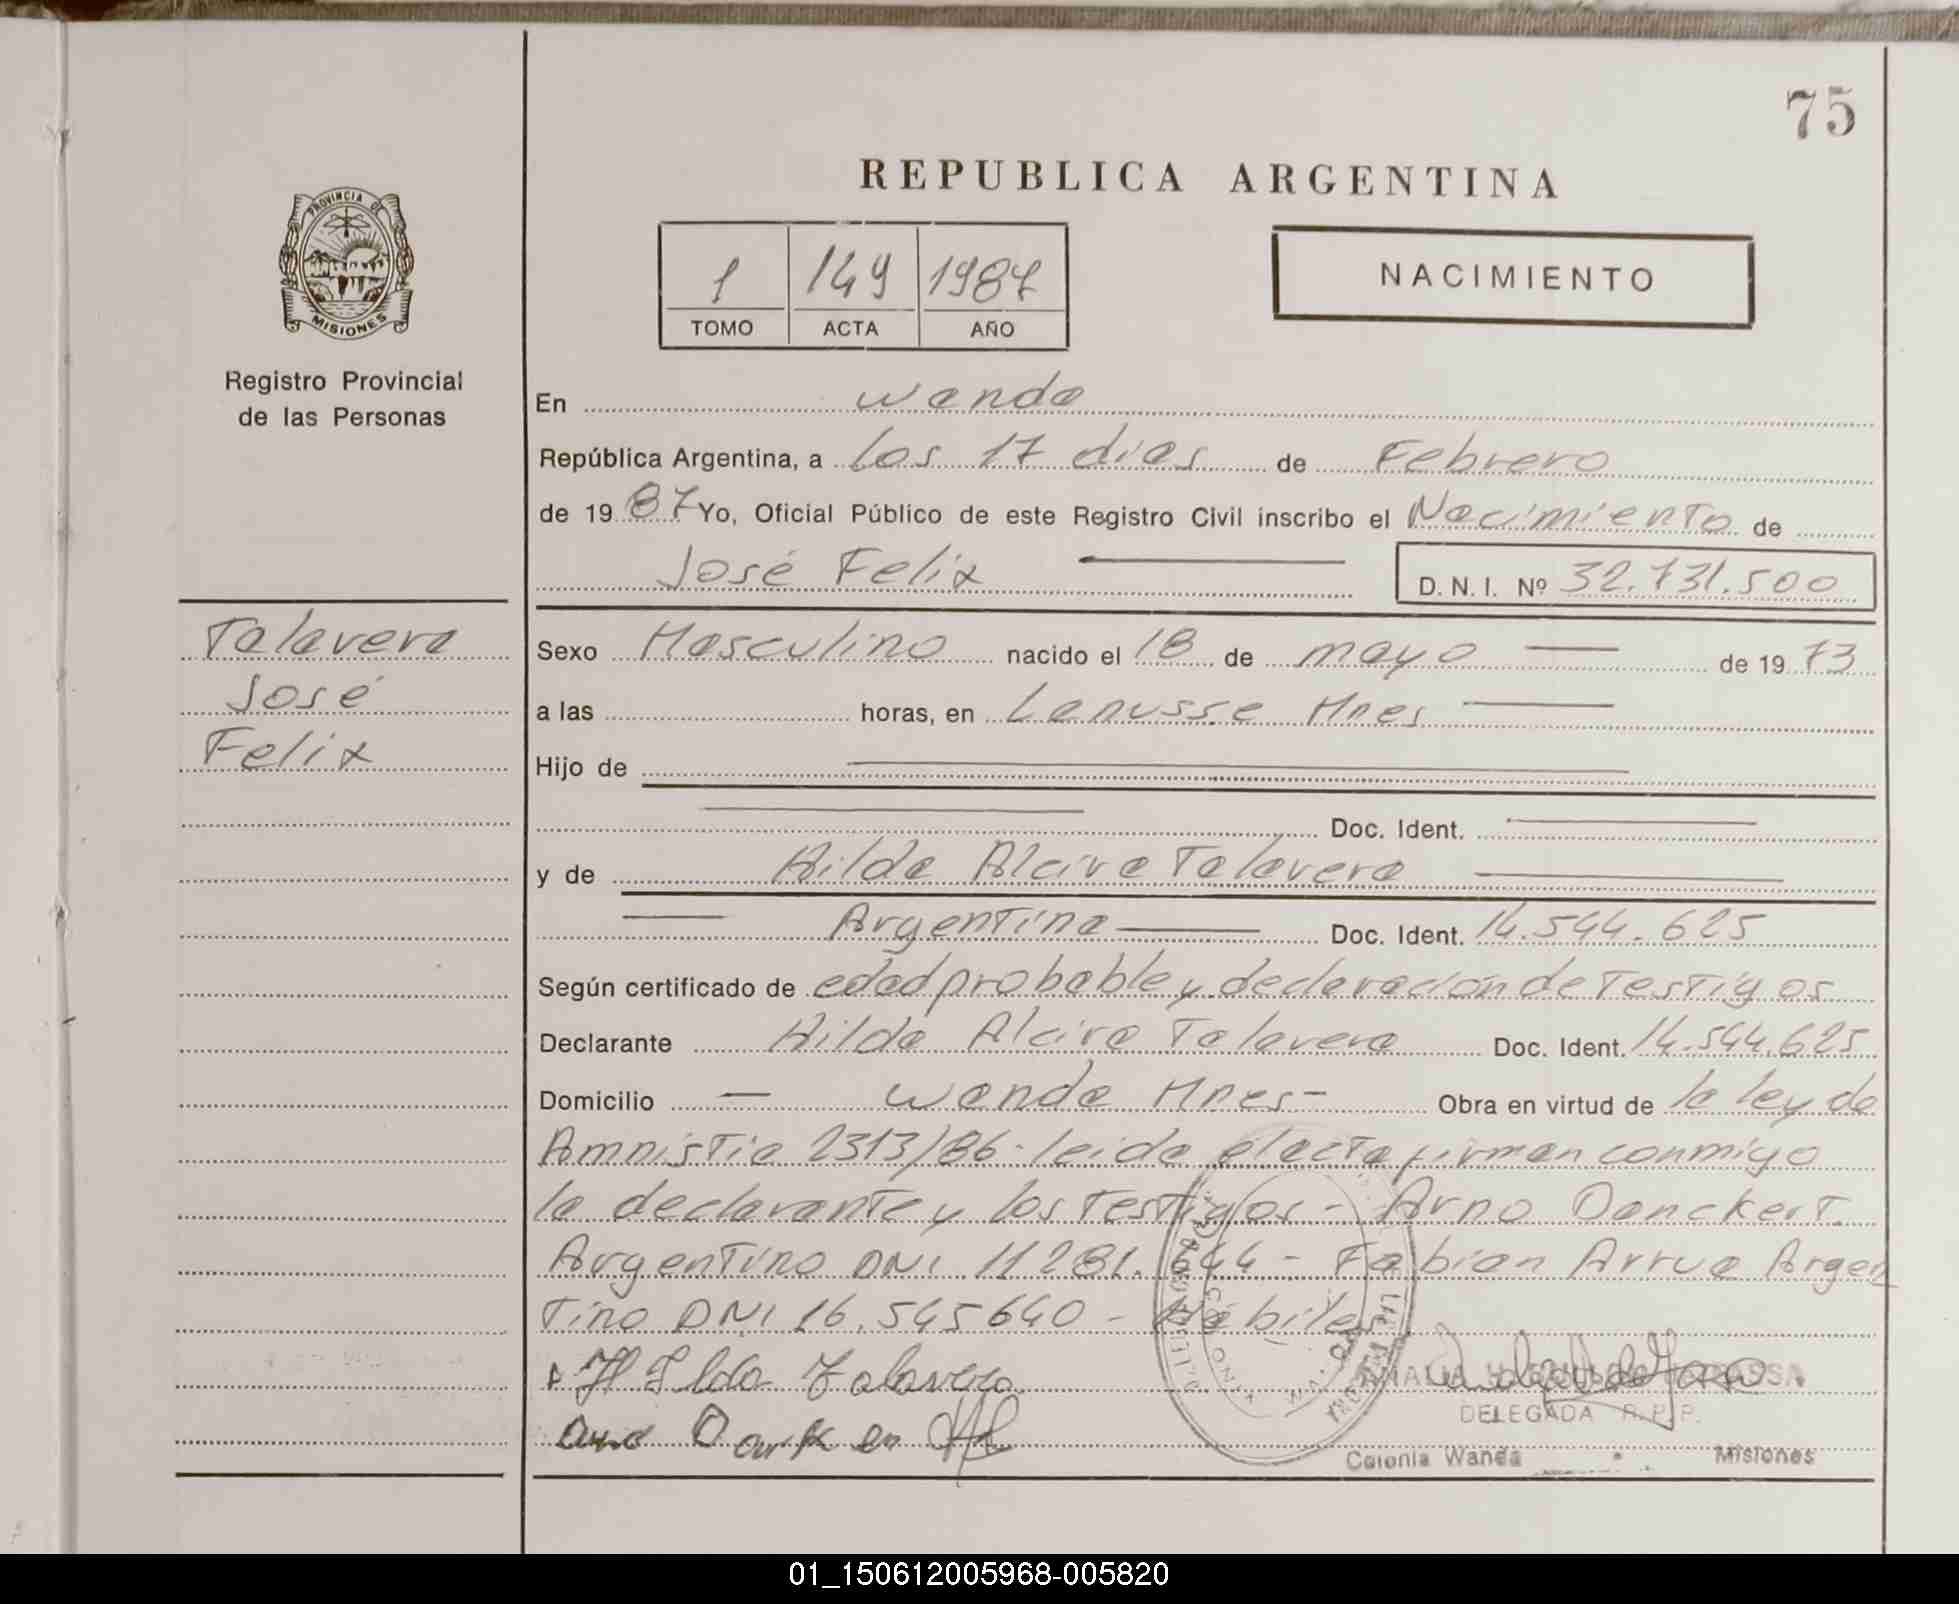 75
REPUBLICA ARGENTINA
PROVINCIA DE
MISIONES
Registro Provincial
de las Personas
1 149 1987
TOMO ACTA AÑO
NACIMIENTO
En Wanda
República Argentina, a los 17 dias de Febrero
de 1987 Yo, Oficial Público de este Registro Civil inscribo el Nacimiento de
José Felix D.N.I. Nº 32.731.500
Talavera
José
Felix
Sexo Masculino nacido el 18 de mayo de 1973
a las horas, en Lanusse Mnes
Hijo de
Doc. Ident.
y de Hilda Alcira Talavera
Argentina Doc. Ident. 14.544.625
Según certificado de edad probable y declaración de Testigos
Declarante Hilda Alcira Talavera Doc. Ident. 14.544.625
Domicilio - Wanda Mnes - Obra en virtud de la ley de
Amnistia 2313/86 - leida el acta firman conmigo
la declarante y los Testigos - Arno Danckert.
Argentino DNI 11281.644 - Fabian Arrua Argen
Tino DNI 16.545640 - Hábiles
Hilda Talavera
DELEGADA R.P.P.
Colonia Wanda Misiones
01_150612005968-005820